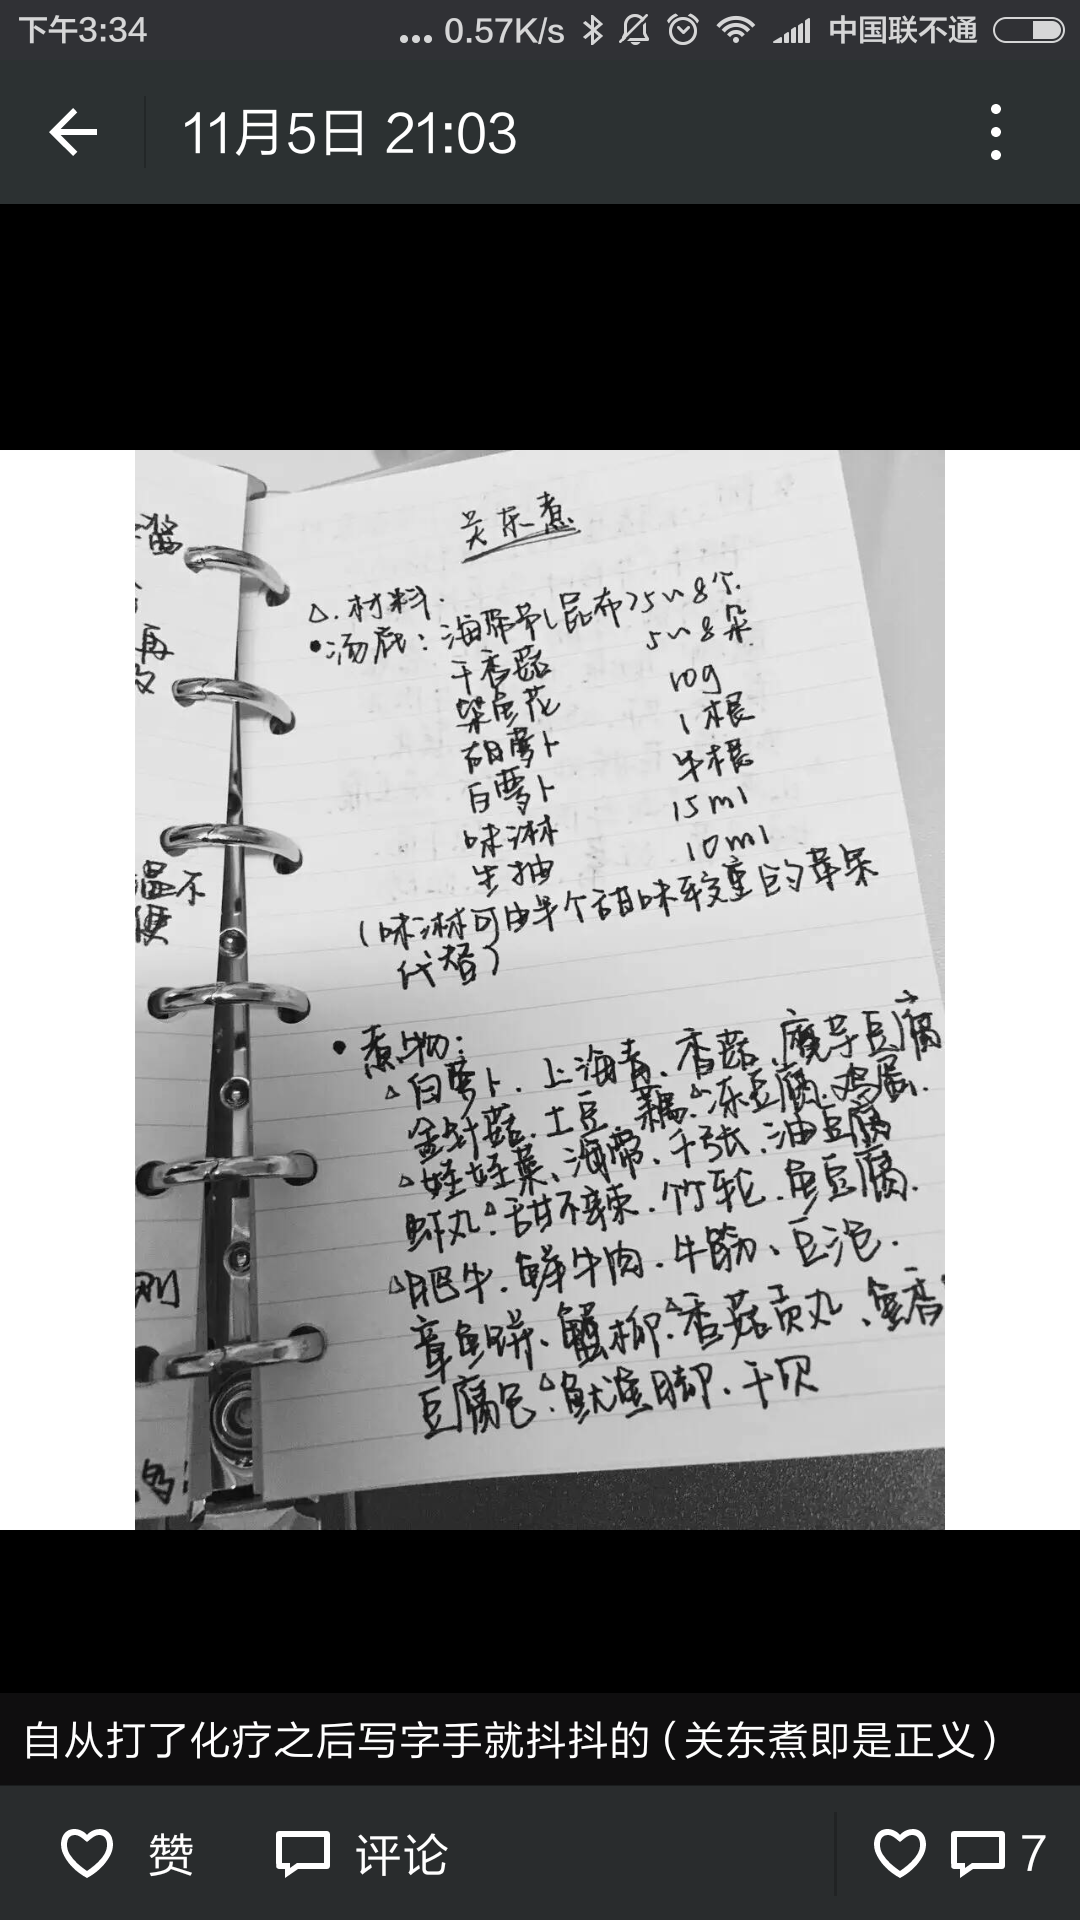 下午3:34 ... 0.57K/s 中国联不通
11月5日 21:03
关东煮
△.材料.
•汤底：海带串(昆布) 5~8个.
干香菇 5~8朵
柴鱼花 10g
胡萝卜 1根
白萝卜 半根
味淋 15ml
生抽 10ml
(味淋可由半个甜味较重的苹果
代替)
•煮物：
△白萝卜.上海青、香菇、魔芋豆腐
金针菇.土豆.藕.△冻豆腐.鸡蛋.
△娃娃菜、海带、千张.油豆腐
虾丸.△甜不辣.竹轮.鱼豆腐.
△肥牛.鲜牛肉.牛筋、豆泡.
章鱼饼、蟹柳.△香菇贡丸、鱼香
豆腐包.△鱿鱼脚.干贝
酱
再
温不
便
刚
自从打了化疗之后写字手就抖抖的（关东煮即是正义）
赞 评论 7